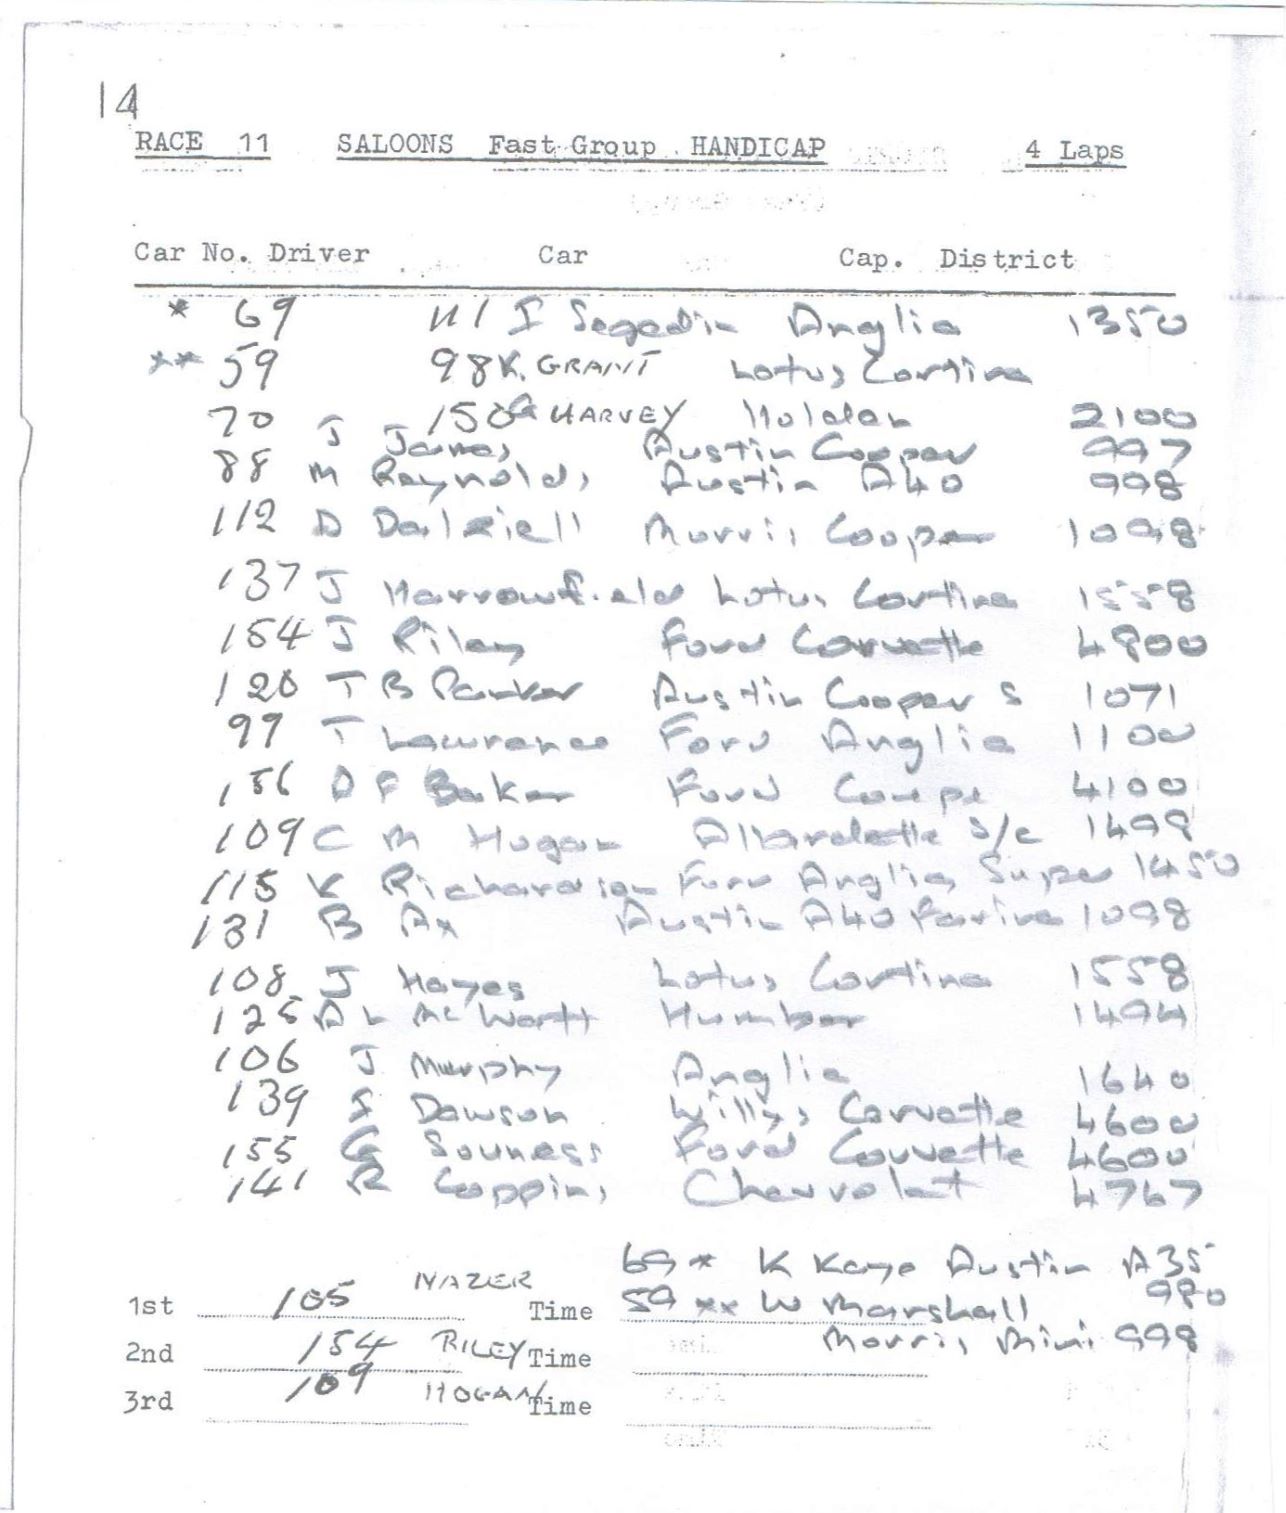 14
RACE 11 SALOONS Fast Group HANDICAP 4 Laps
Car No. Driver Car Cap. District
* 69 111 I Segedin Anglia 1350
** 59 98 K. GRANT Lotus Cortina
70 150 G HARVEY Holden 2100
J James Austin Cooper 997
88 M Reynolds Austin A40 998
112 D Dalziell Morris Cooper 1098
137 J Harrowfield Lotus Cortina 1558
154 J Riley Ford Corvette 4800
120 T B Parker Austin Cooper S 1071
99 T Lawrence Ford Anglia 1100
156 D F Baker Ford Coupe 4100
109 C M Hogan Allardette S/c 1498
115 K Richardson Ford Anglia Super 1450
131 B Ax Austin A40 Farina 1098
108 J Hayes Lotus Cortina 1558
125 A L McWartt Humber 1494
106 J Murphy Anglia 1640
139 S Dawson Willys Corvette 4600
155 G Souness Ford Corvette 4600
141 R Coppins Chevvolet 4767
69 * K Kaye Austin A35
980
1st 105 NAZER Time 59 ** W Marshall
Morris Mini 998
2nd 154 RILEY Time
3rd 109 HOGAN Time